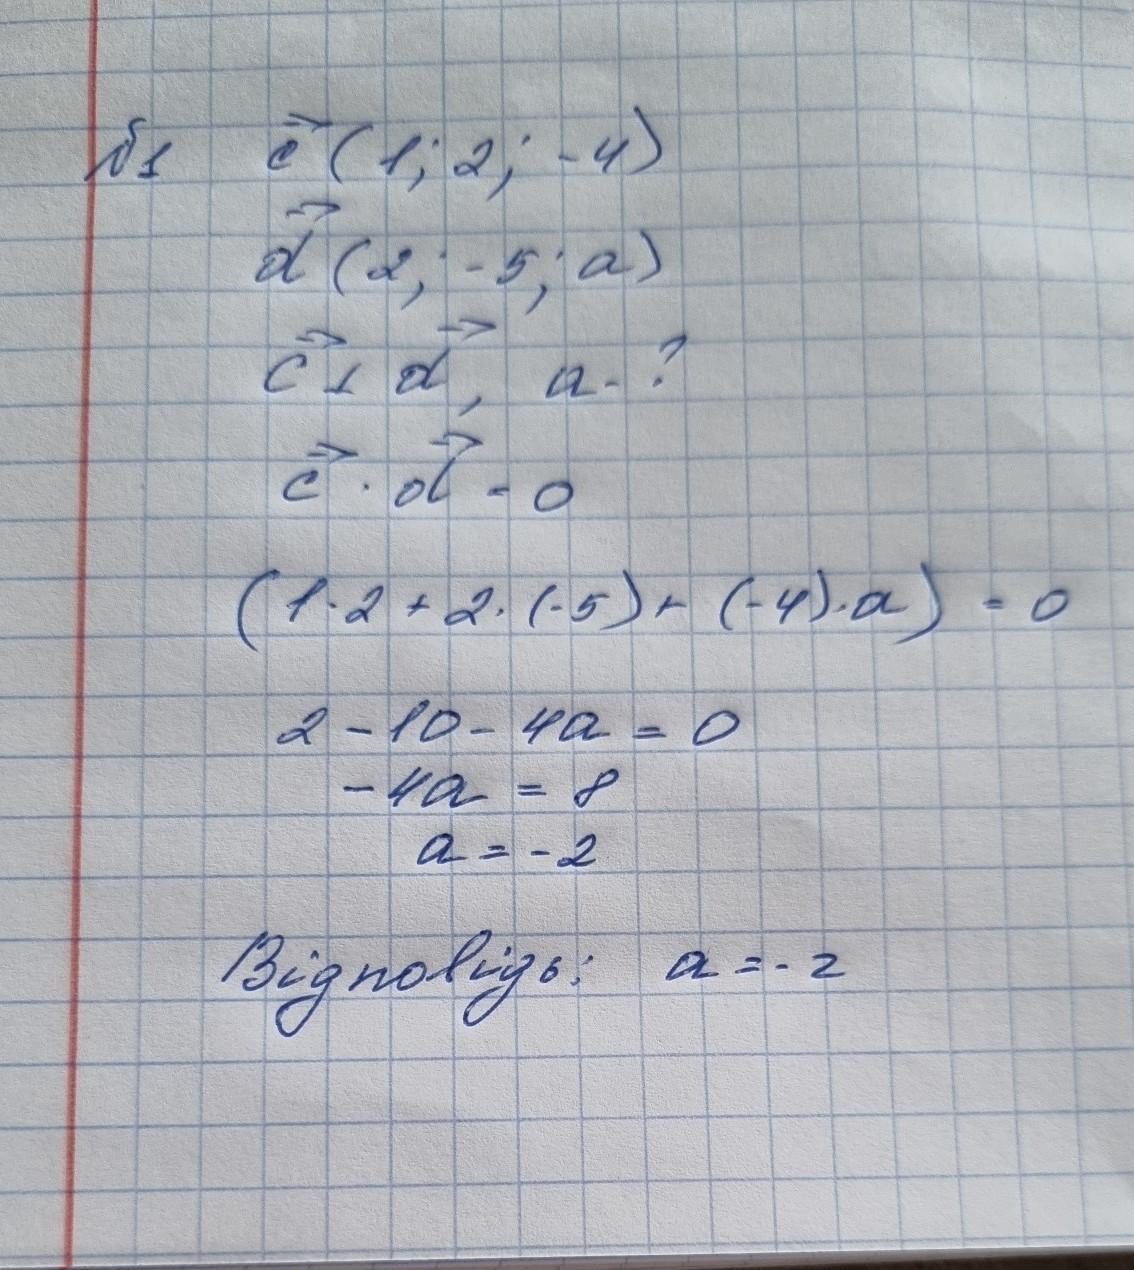 №1 c⃗ (1; 2; -4)
d⃗ (2; -5; a)
c⃗ ⊥ d⃗, a - ?
c⃗ · d⃗ = 0
(1·2 + 2·(-5) + (-4)·a) = 0
2 - 10 - 4a = 0
-4a = 8
a = -2
Відповідь: a = -2